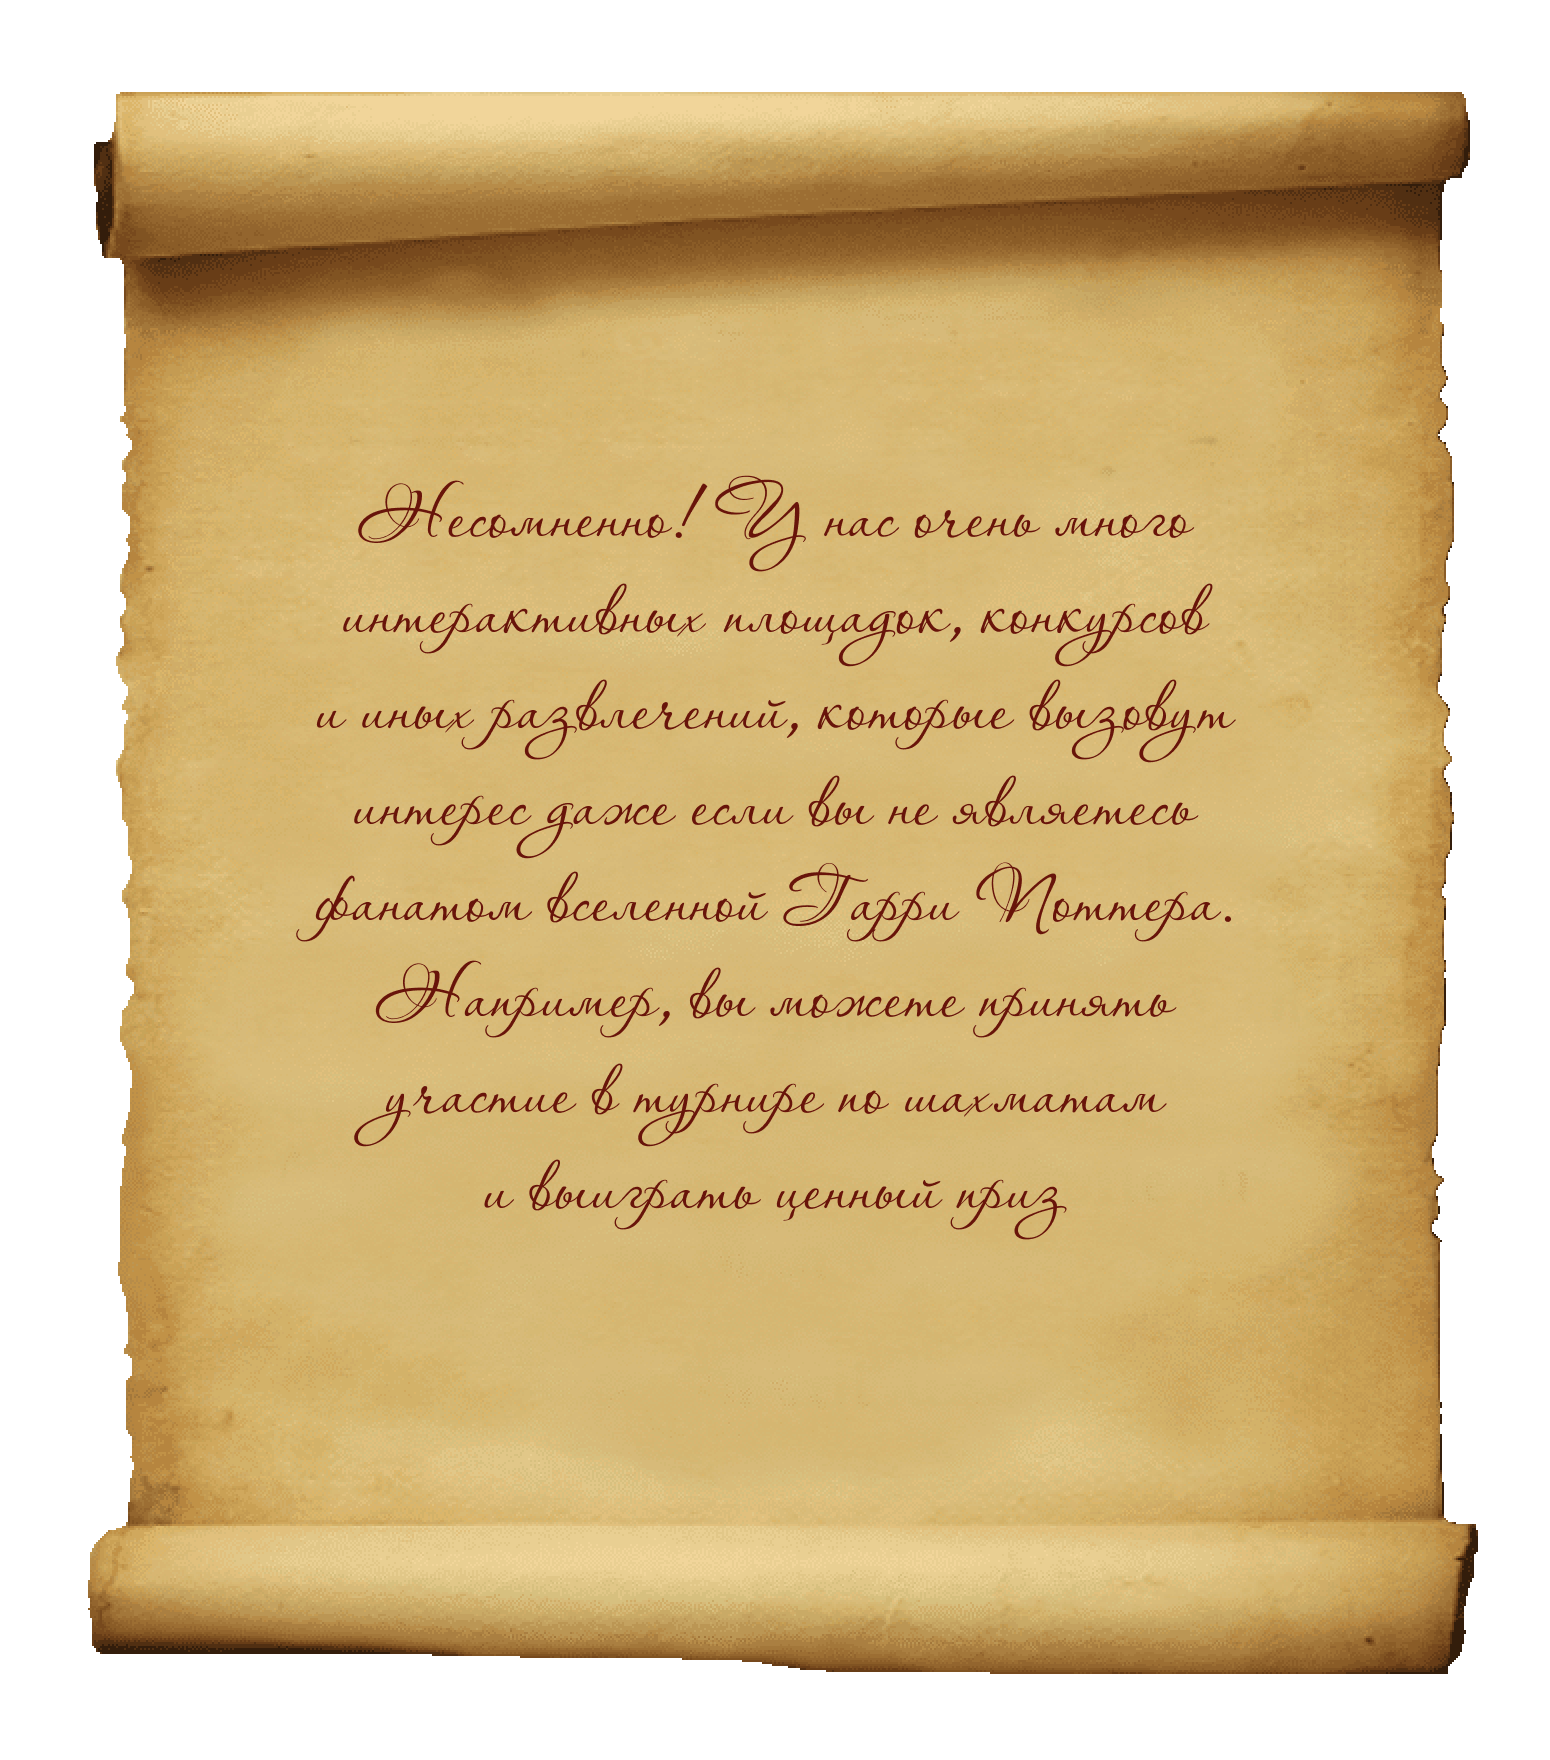 Несомненно! У нас очень много
интерактивных площадок, конкурсов
и иных развлечений, которые вызовут
интерес даже если вы не являетесь
фанатом вселенной Гарри Поттера.
Например, вы можете принять
участие в турнире по шахматам
и выиграть ценный приз